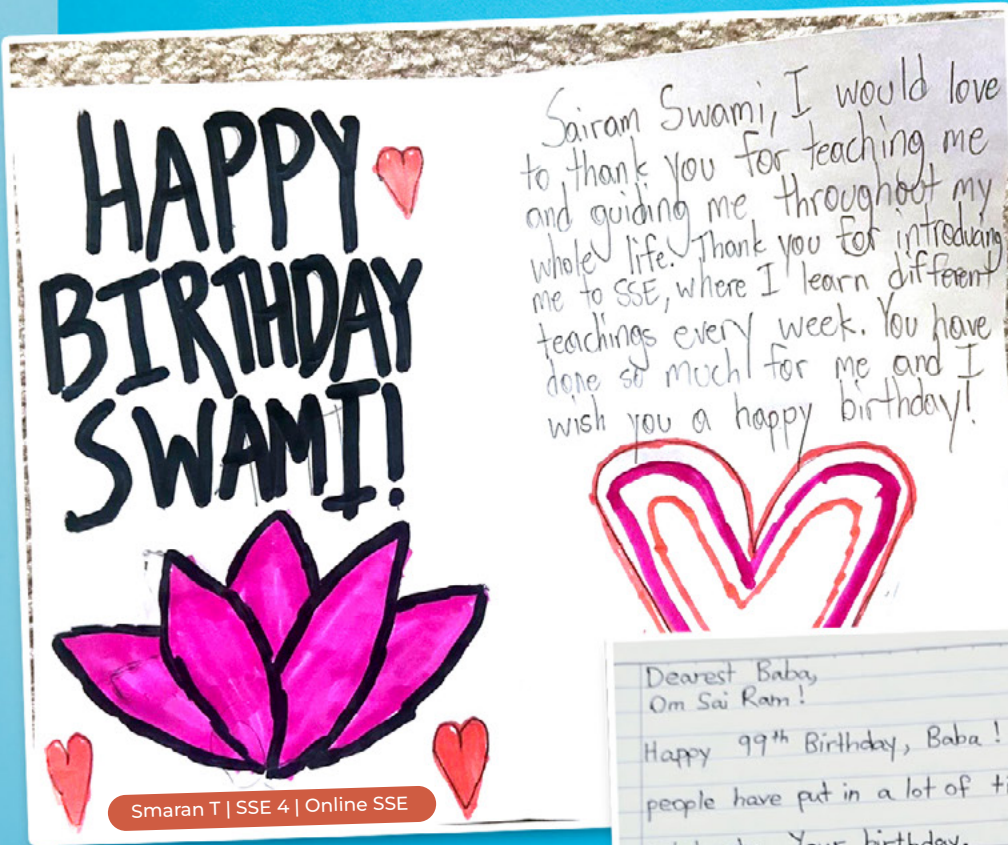 HAPPY
BIRTHDAY
SWAMI!
Smaran T | SSE 4 | Online SSE
Sairam Swami, I would love
to thank you for teaching me
and guiding me throughout my
whole life. Thank you for introducing
me to SSE, where I learn different
teachings every week. You have
done so much for me and I
wish you a happy birthday!
Dearest Baba,
Om Sai Ram!
Happy 99th Birthday, Baba!
people have put in a lot of
Your birthday.